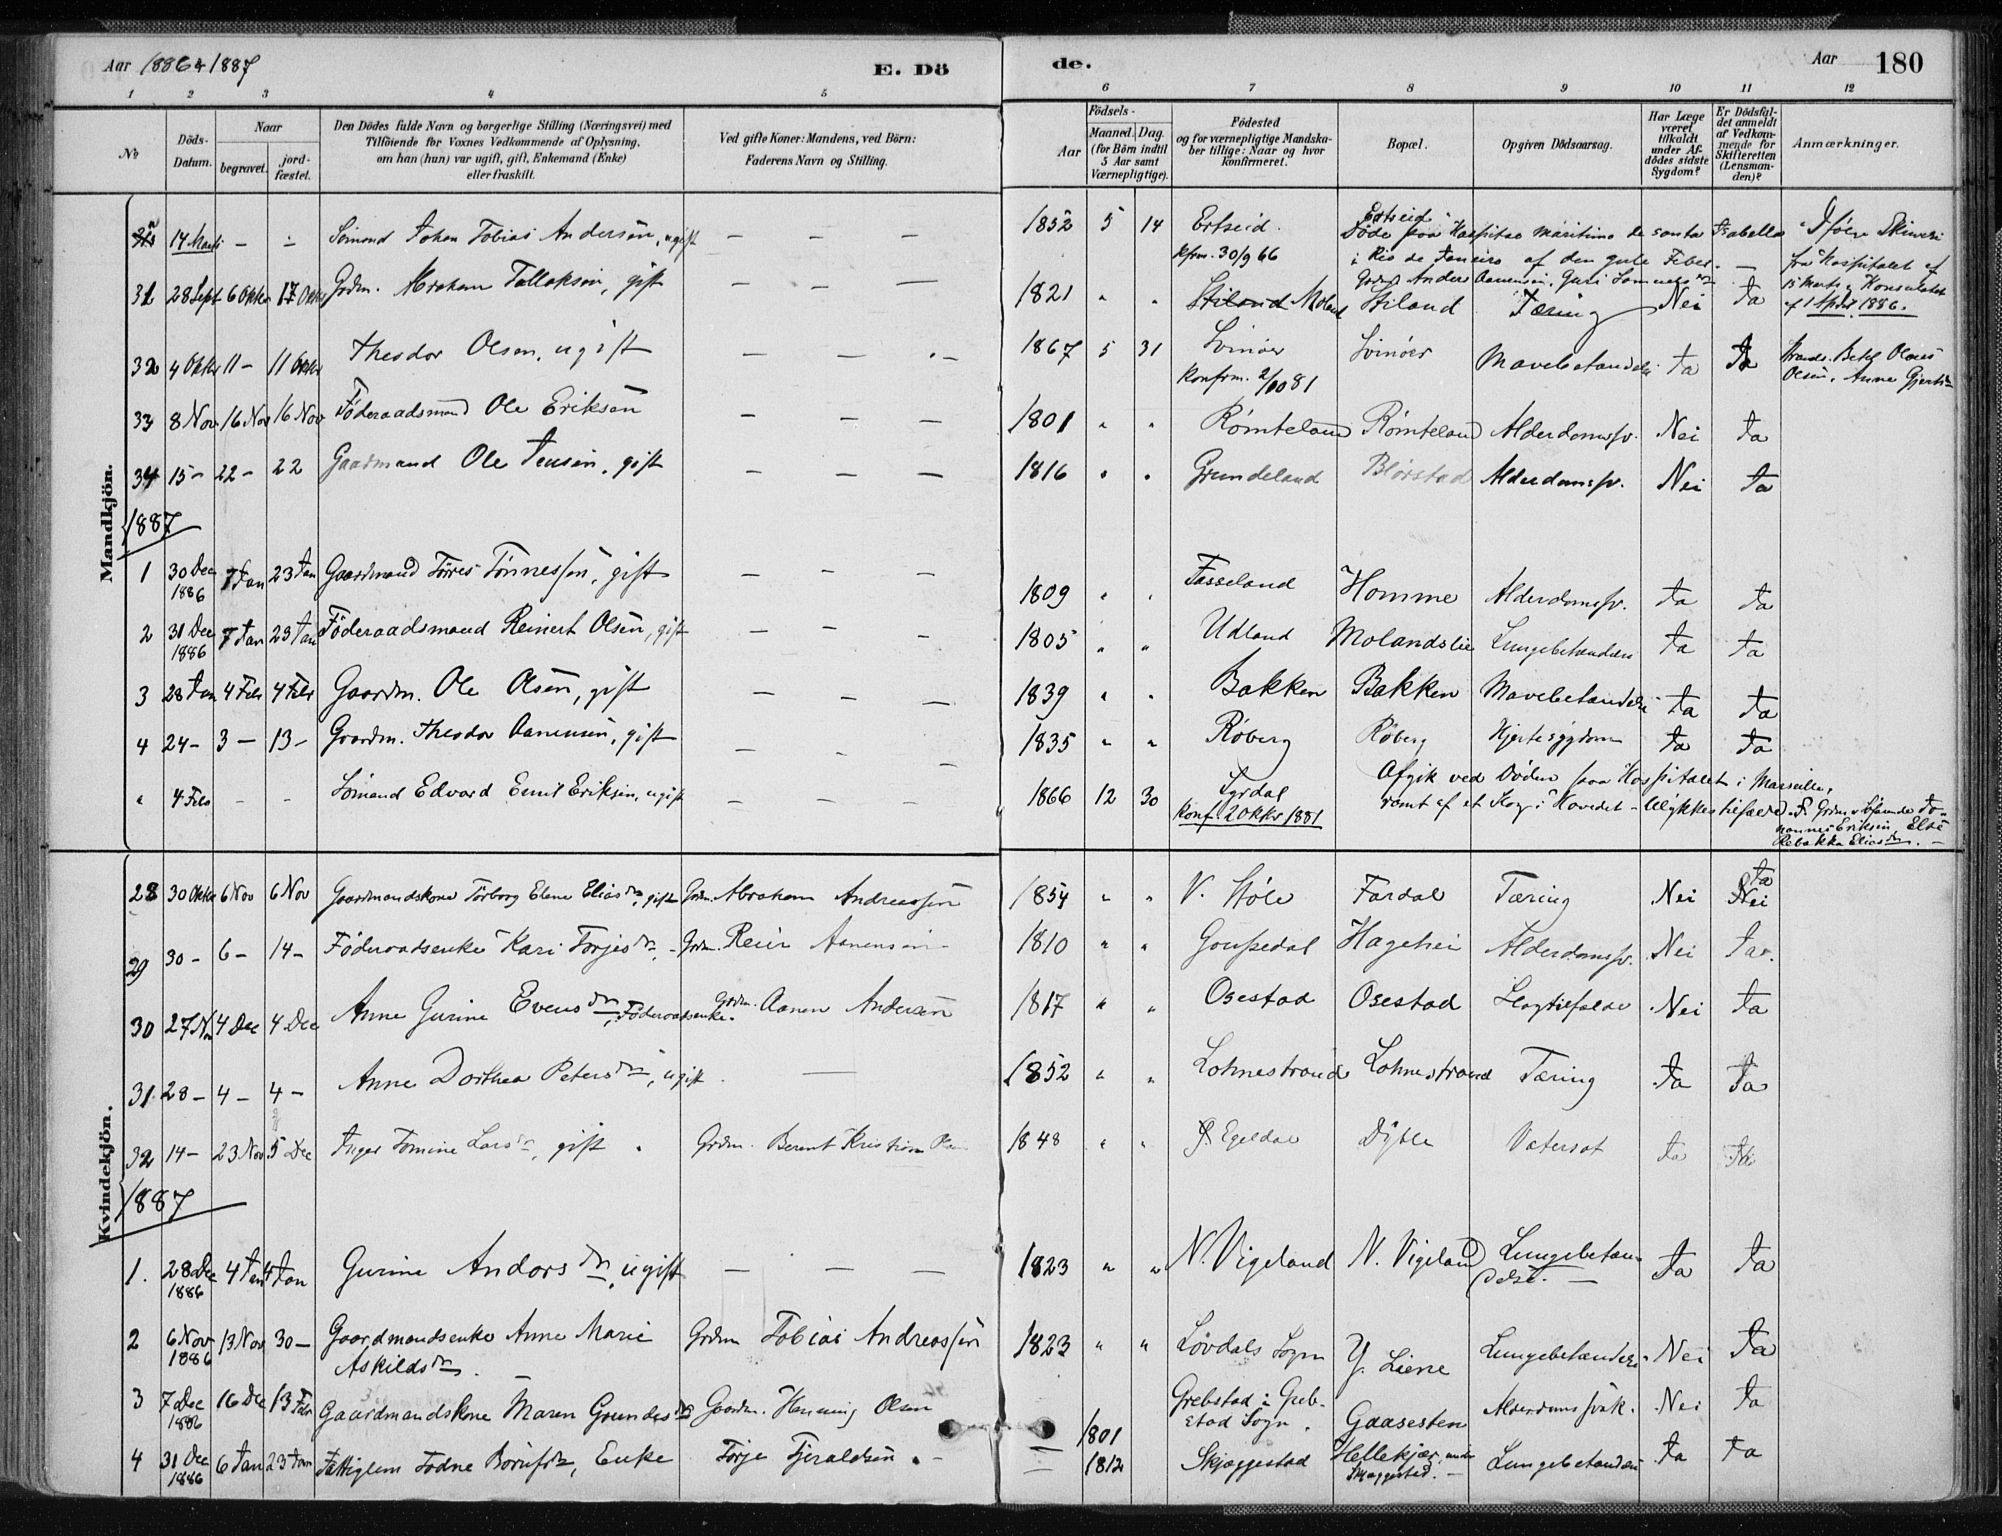 Aar 1886 & 1887
E. Dö
de.
Aar 180
1 2 3 4 5 6 7 8 9 10 11 12
No
Döds-Datum.
Naar
begravet.
jord-fæstet.
Den Dödes fulde Navn og borgerlige Stilling (Næringsvei) med
Tilföiende for Voxnes Vedkommende af Oplysning,
om han (hun) var ugift, gift, Enkemand (Enke)
eller fraskilt.
Ved gifte Koner: Mandens, ved Börn:
Faderens Navn og Stilling.
Födsels-
Aar
Maaned. Dag.
(for Börn indtil
5 Aar samt
Værnepligtige).
Födested
og for værnepligtige Mandska-
ber tillige: Naar og hvor
konfirmeret.
Bopæl.
Opgiven Dödsaarsag.
Har Læge
været
tilkaldt
under Af-
dödes sidste
Sygdom?
Er Dödsfal-
det anmeldt
af Vedkom-
mende for
Skifteretten
(Lensman-
den)?
Anmærkninger.
Mandkjön.
14 Marts – – Sömand Johan Tobias Andersen, ugift – – – 1852 5 14 Ertseid. Ertseid
kfrm. 30/9 66 Døde paa Hospitao maritimo de santa Isabella
i Rio de Janeiro af den gule Feber. –
fra Hospitalet af
Konsulatet
af 1 April 1886.
31 28 Sept 6 Oktbr 17 Oktbr Grdm. Abraham Tallaksen, gift – – – 1821 " " Stiland Moland Stiland Tæring Nei Ja
32 4 Oktbr 11 – 11 Oktbr Theodor Olsen, ugift – – – 1867 5 31 Svinøer Svinøer Mavebetændelse Ja Ja
Konfrm. 2/10 81
Olsen, Anne
33 8 Nov 16 Nov 16 Nov Föderaadsmand Ole Eriksen – – – 1801 " " Rømteland Rømteland Alderdomssv. Nei Ja
34 15 – 22 – 22 Gaardmand Ole Jensen, gift – – – 1816 " " Grundeland Blørstad Alderdomssv. Nei Ja
1887
1 30 Dec 1886 7 Jan 23 Jan Gaardmand Tørres Tønnessen, gift – – – 1809 " " Fasseland Homme Alderdomssv. Ja Ja
2 31 Dec 1886 7 Jan 23 Jan Föderaadsmand Reinert Olsen, gift – – – 1805 " " Udland Molandslie Lungebetændelse Ja Ja
3 28 Jan 4 Febr 4 Febr Gaardm. Ole Olsen, gift – – – 1839 " " Bakken Bakken Mavebetændelse Ja Ja
4 24 – 3 – 13 – Gaardm. Theodor Aanensen, gift – – – 1835 " " Røberg Røberg Hjertesygdom Ja Ja
" 4 Febr – – Sömand Edvard Emil Eriksen, ugift – – – 1866 12 30 Lyrdal Afgik ved Døden paa Hospitalet i Marseille,
konf. 2 Oktbr 1881 ramt af et Slag i Hovedet – Ulykkestilfælde.
hannes Eriksen Else
Rebekka Eliasdtr. –
Kvindekjön.
28 30 Oktbr 6 Nov 6 Nov Gaardmandskone Törborg Elene Eliasdtr, gift Grdm. Abraham Andreassen 1854 " " V. Støle Fardal Tæring Nei Ja Nei
29 30 – 6 – 14 – Föderaadsenke Kari Torjesdtr. – Grdm. Reier Aanensen – 1810 " " Goupedal Hagehei Alderdomssv. Nei Ja.
30 27 Nov 4 Dec 4 Dec Anne Gurine Evensdtr, Föderaadsenke. Grdm. Aanen Andersen 1817 " " Osestad Osestad Slagtilfælde Nei Ja
31 28 – 4 – 4 – Anne Dorthea Petersdtr, ugift. – 1852 " " Lohnestrand Lohnestrand Tæring Ja Ja
32 14 – 23 Nov 5 Dec Inger Tomine Larsdtr, gift. Grdm. Bernt Kristian 1848 " " Egeldal Dyble Vatersot Ja Ja
1887
1. 28 Dec 1886 4 Jan 4 Jan Gurine Andorsdtr, ugift – – – 1823 " " N. Vigeland N. Vigeland Lungebetæn-
delse. – Ja Ja
2 6 Nov 1886 13 Nov 30 – Gaardmandsenke Anne Marie Grdm Tobias Andreassen 1823 " " Løvdals Sogn Y. Liene Lungebetændelse Nei Ja
Askildsdtr.
3 7 Dec 1886 16 Dec 13 Febr Gaardmandskone Maren Gundersdtr Gaardm. Henning Olsen 1801 Grebstad i Greb-
stad Sogn. Gaasesten Alderdomssvak. Nei Ja
4 31 Dec 1886 6 Jan 23 Jan Fattiglem Todne Börufsdtr, Enke Torje Tjeraldsen. – – 1812 Skjæggestad Hellekjær under
Skjæggestad. – Lungebetændelse Ja Ja